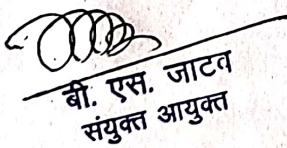 बी. एस. जाटव
संयुक्त आयुक्त